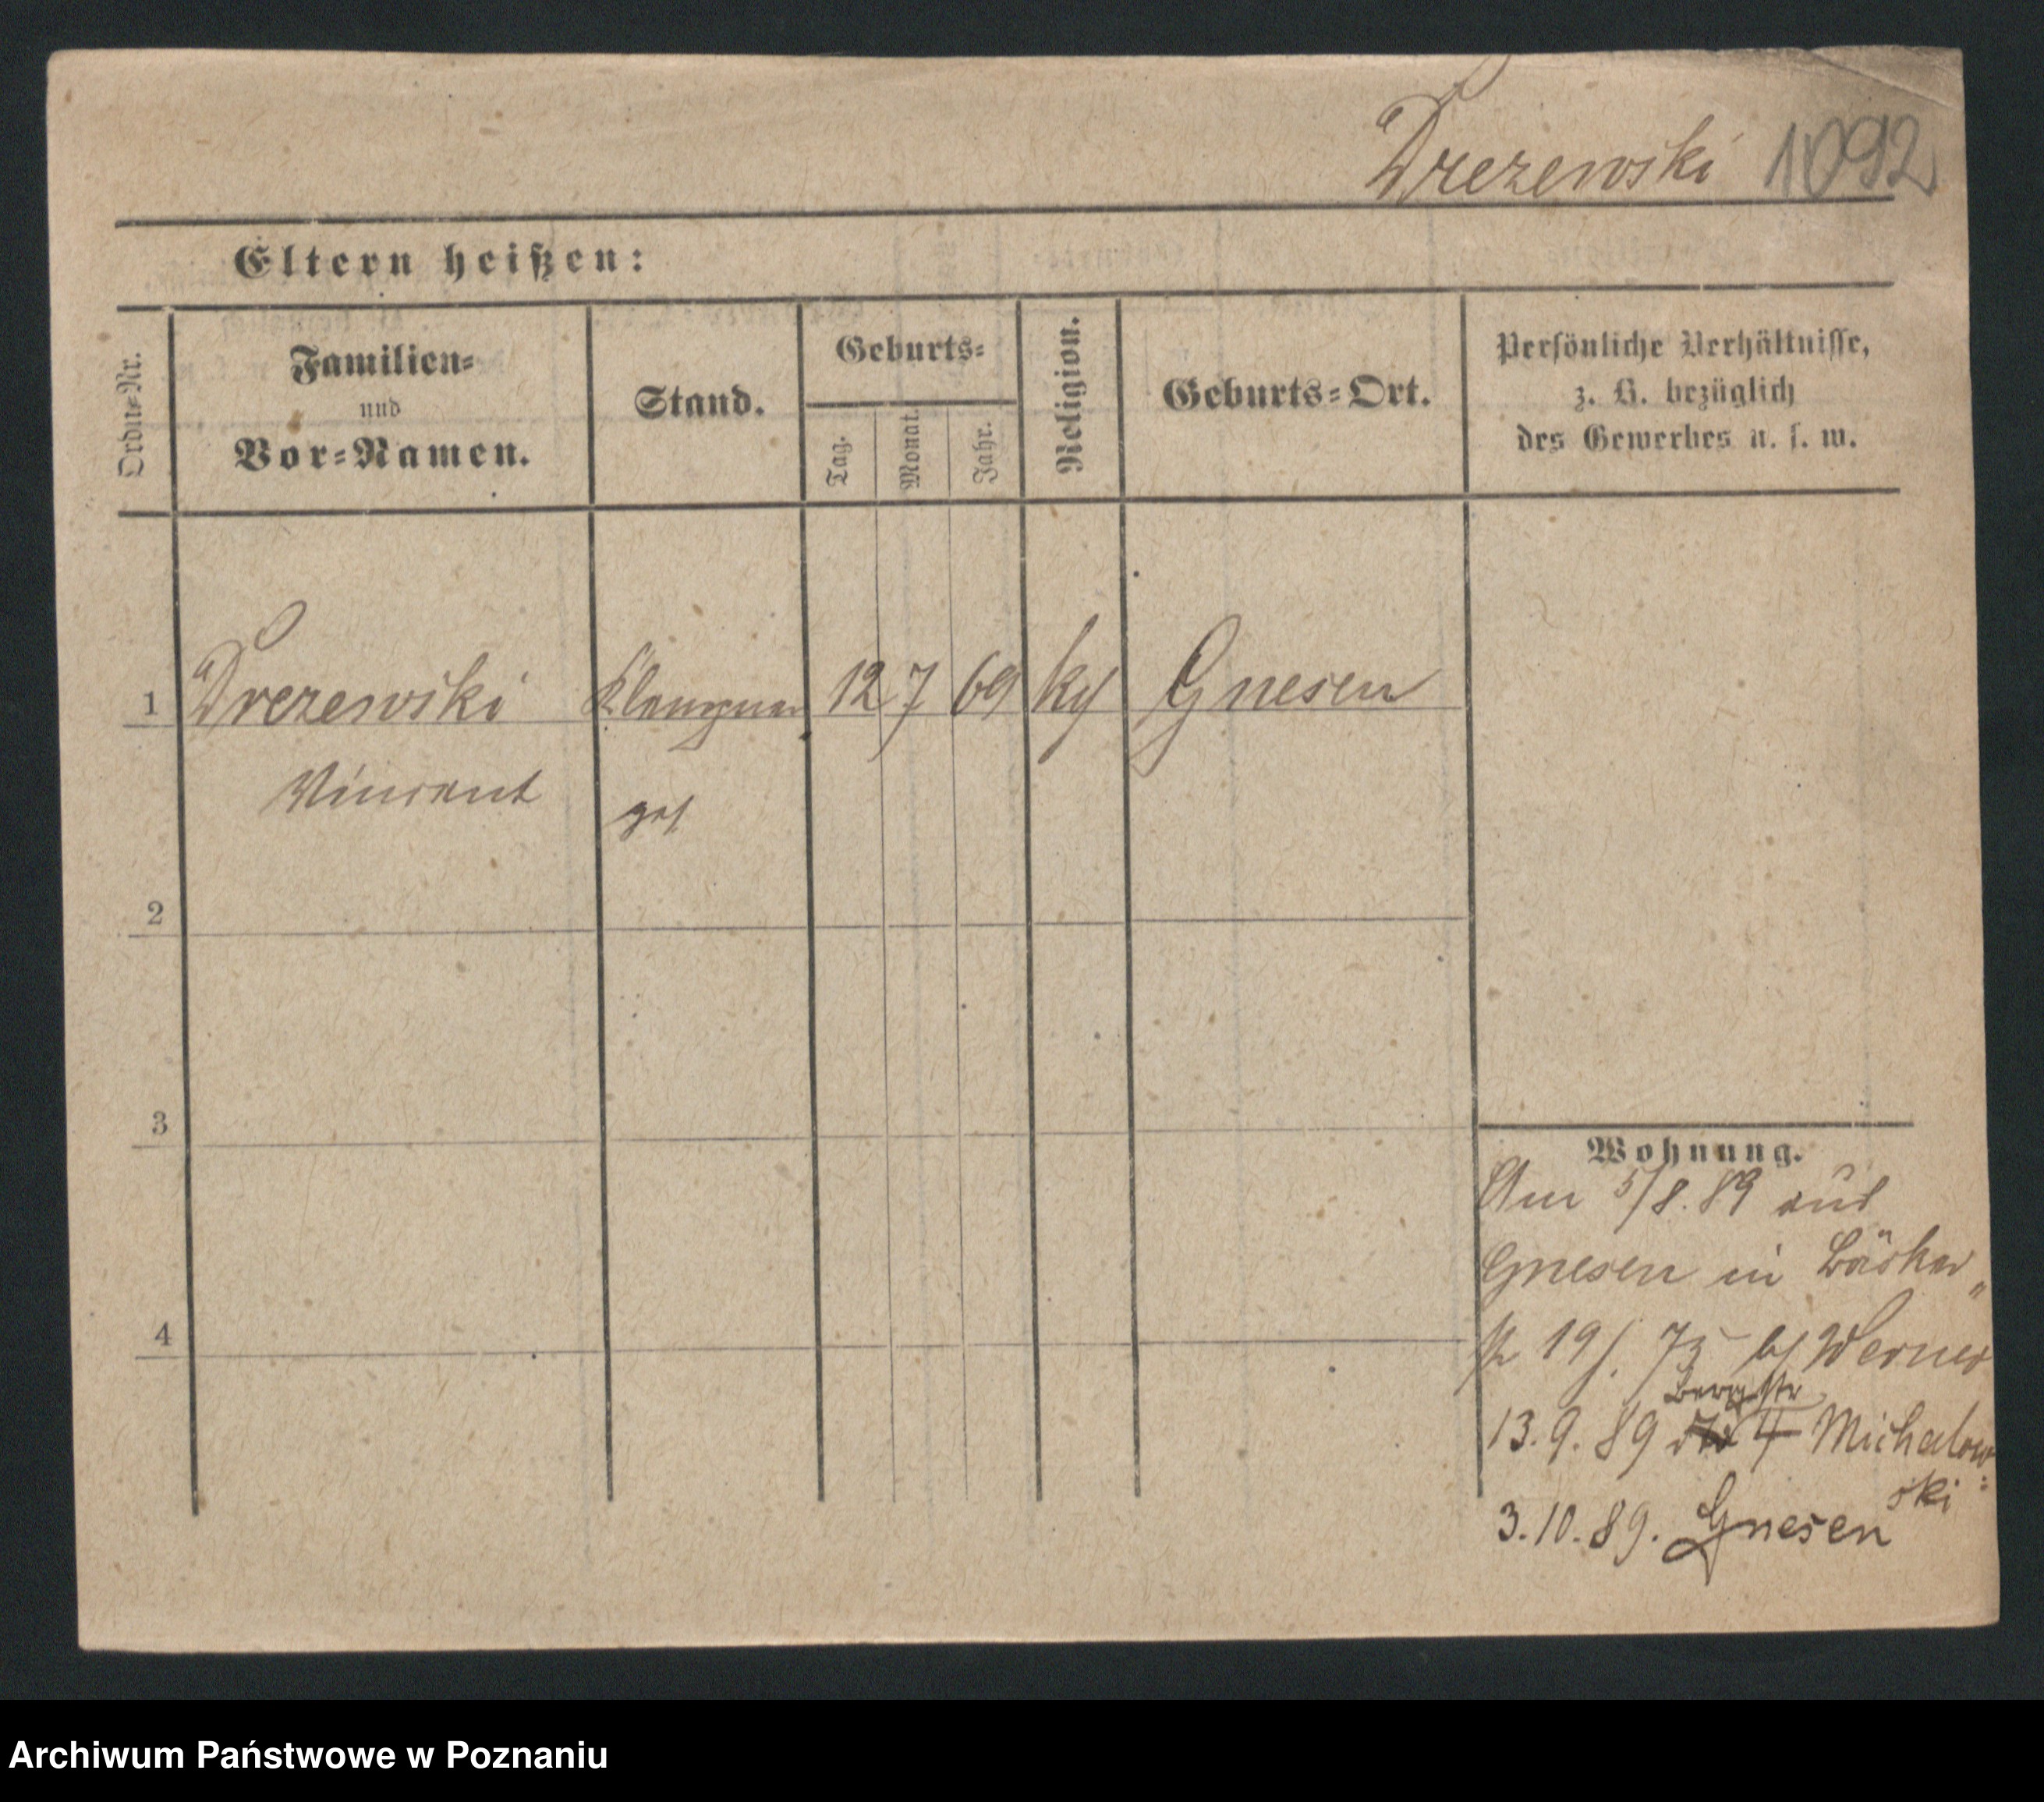 Drezewski 1092
Eltern heißen:
Ordn=Nr.
Familien=
und
Vor=Namen.
Stand.
Geburts=
Tag.
Monat.
Jahr.
Religion.
Geburts=Ort.
Persönliche Verhältnisse,
z. B. bezüglich
des Gewerbes u. s. w.
1 Drezewski Klempner 12 7 69 Gnesen
Vincent
2
3
4
Wohnung.
Am 5/8. 89 aus
Gnesen in Bäcker
19
Werner
Bergstr
13.9.89 4 Michalow
ski
3.10.89. Gnesen
Archiwum Państwowe w Poznaniu